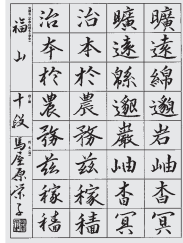 曠遠綿邈岩岫杳冥
曠遠緜邈巖岫杳冥
治本於農務茲稼穡
治本於農務茲稼穡
福山 十段 馬屋原栄子